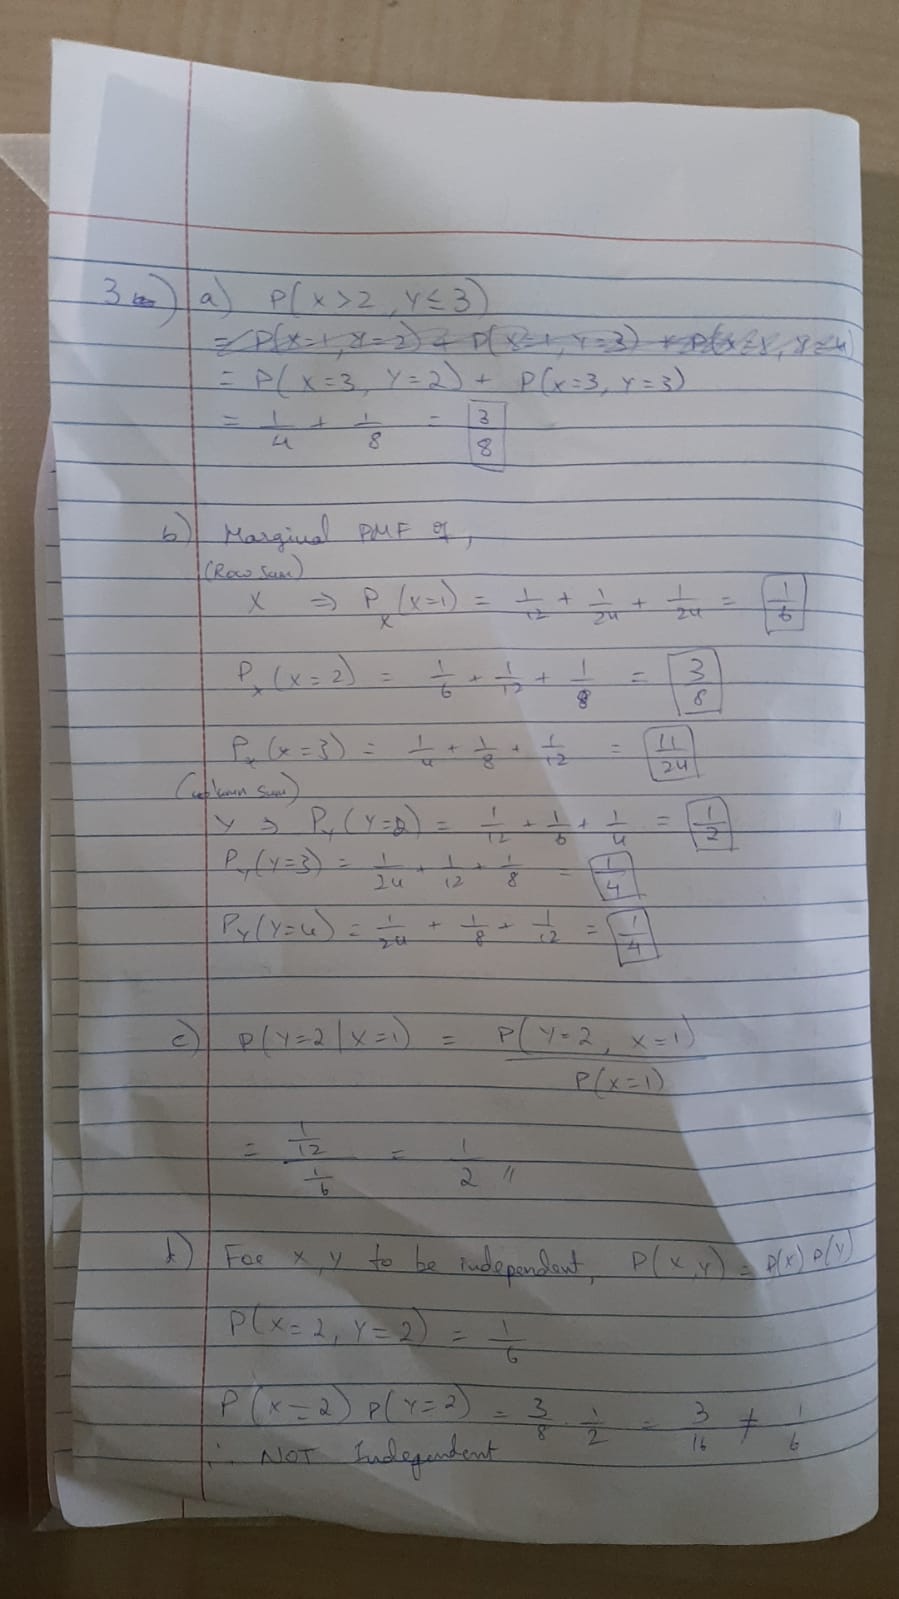 3) a) P(X>2, Y≤3)
= P(X=1, Y=2) + P(X=1, Y=3) +
= P(X=3, Y=2) + P(X=3, Y=3)
= 1/4 + 1/8 = 3/8
b) Marginal PMF of,
(Row Sum)
X ⇒ P_X(X=1) = 1/12 + 1/24 + 1/24 = 1/6
P_X(X=2) = 1/6 + 1/12 + 1/8 = 3/8
P_X(X=3) = 1/4 + 1/8 + 1/12 = 11/24
(column sum)
Y ⇒ P_Y(Y=2) = 1/12 + 1/6 + 1/4 = 1/2
P_Y(Y=3) = 1/24 + 1/12 + 1/8 = 1/4
P_Y(Y=4) = 1/24 + 1/8 + 1/12 = 1/4
c) P(Y=2|X=1) = P(Y=2, X=1) / P(X=1)
= (1/12) / (1/6) = 1/2 //
d) For X, Y to be independent, P(X,Y) = P(X) P(Y)
P(X=2, Y=2) = 1/6
P(X=2) P(Y=2) = 3/8 · 1/2 = 3/16 ≠ 1/6
∴ NOT Independent